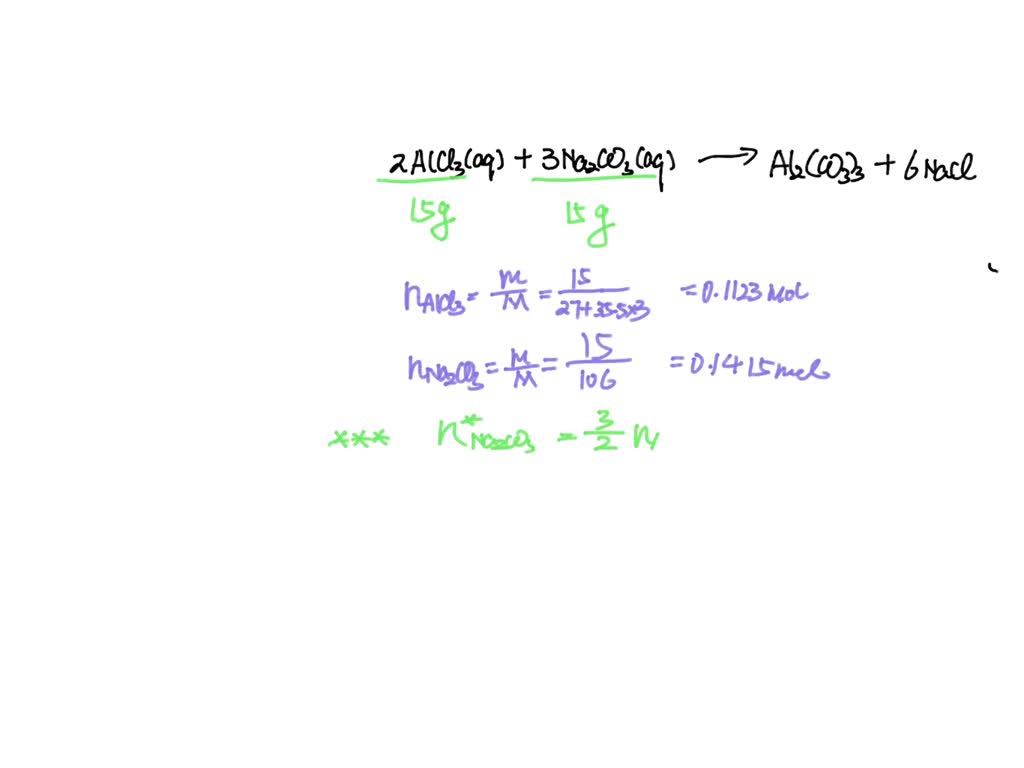 2AlCl₃(aq) + 3Na₂CO₃(aq) → Al₂(CO₃)₃ + 6NaCl
15g 15g
n_AlCl₃ = m/M = 15/(27+35.5×3) = 0.1123 mol
n_Na₂CO₃ = m/M = 15/106 = 0.1415 mol
*** n*_Na₂CO₃ = 3/2 n